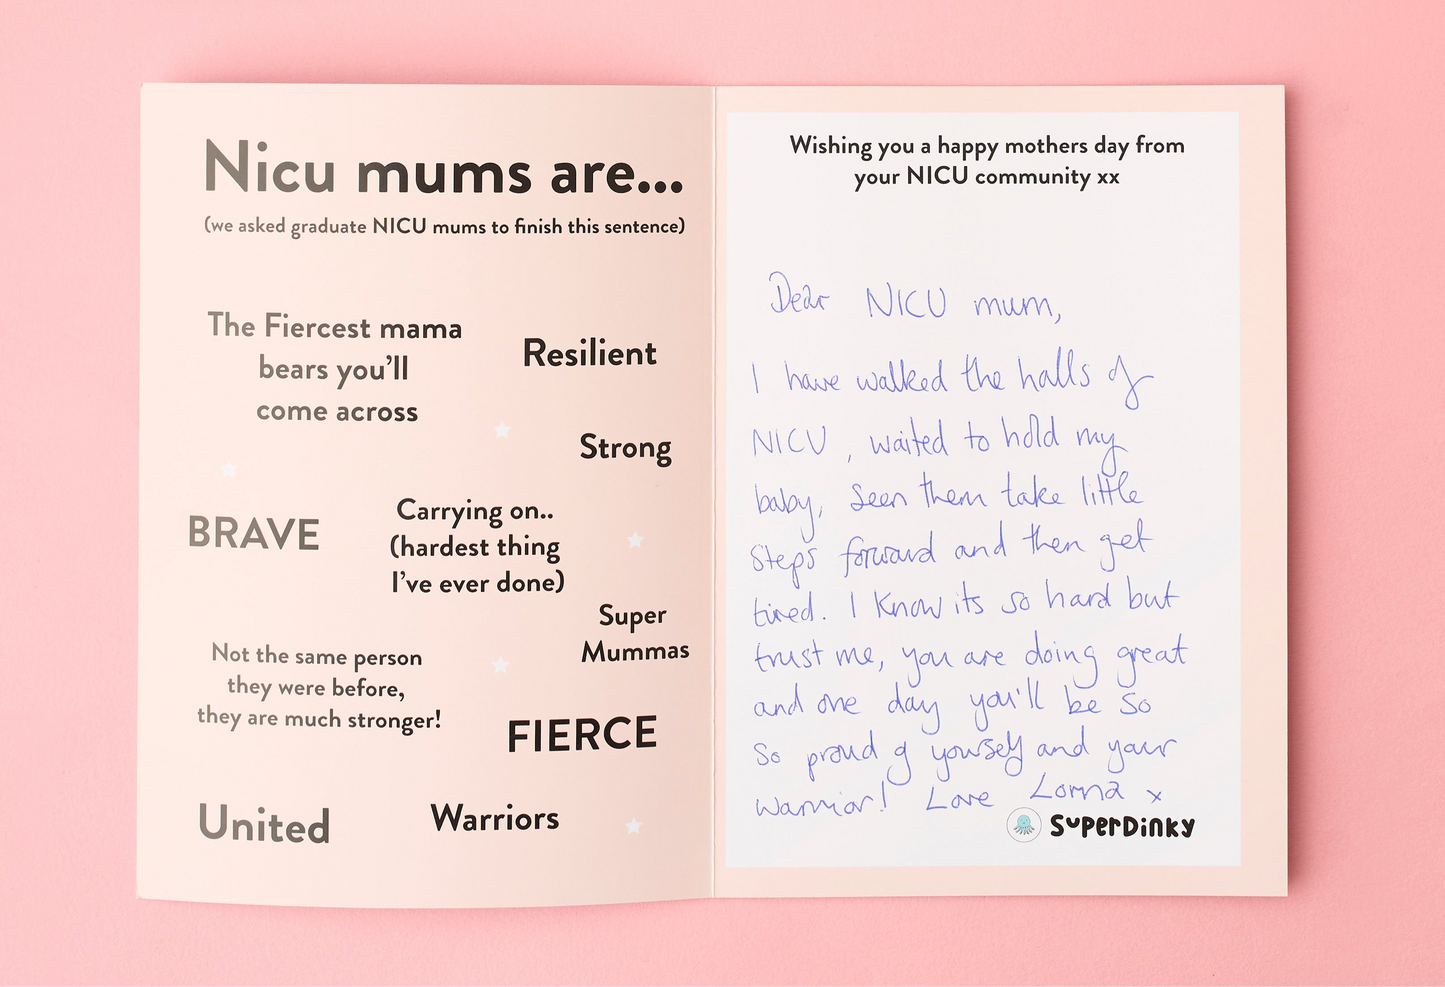 Nicu mums are...
(we asked graduate NICU mums to finish this sentence)
The Fiercest mama
bears you'll
come across
Resilient
Strong
BRAVE
Carrying on..
(hardest thing
I've ever done)
Super
Mummas
Not the same person
they were before,
they are much stronger!
FIERCE
United
Warriors
Wishing you a happy mothers day from
your NICU community xx
Dear NICU mum,
I have walked the halls of
NICU, waited to hold my
baby, seen them take little
steps forward and then get
tired. I know its so hard but
trust me, you are doing great
and one day you'll be so
so proud of yourself and your
warrior! Love Lorna x
SUPERDINKY